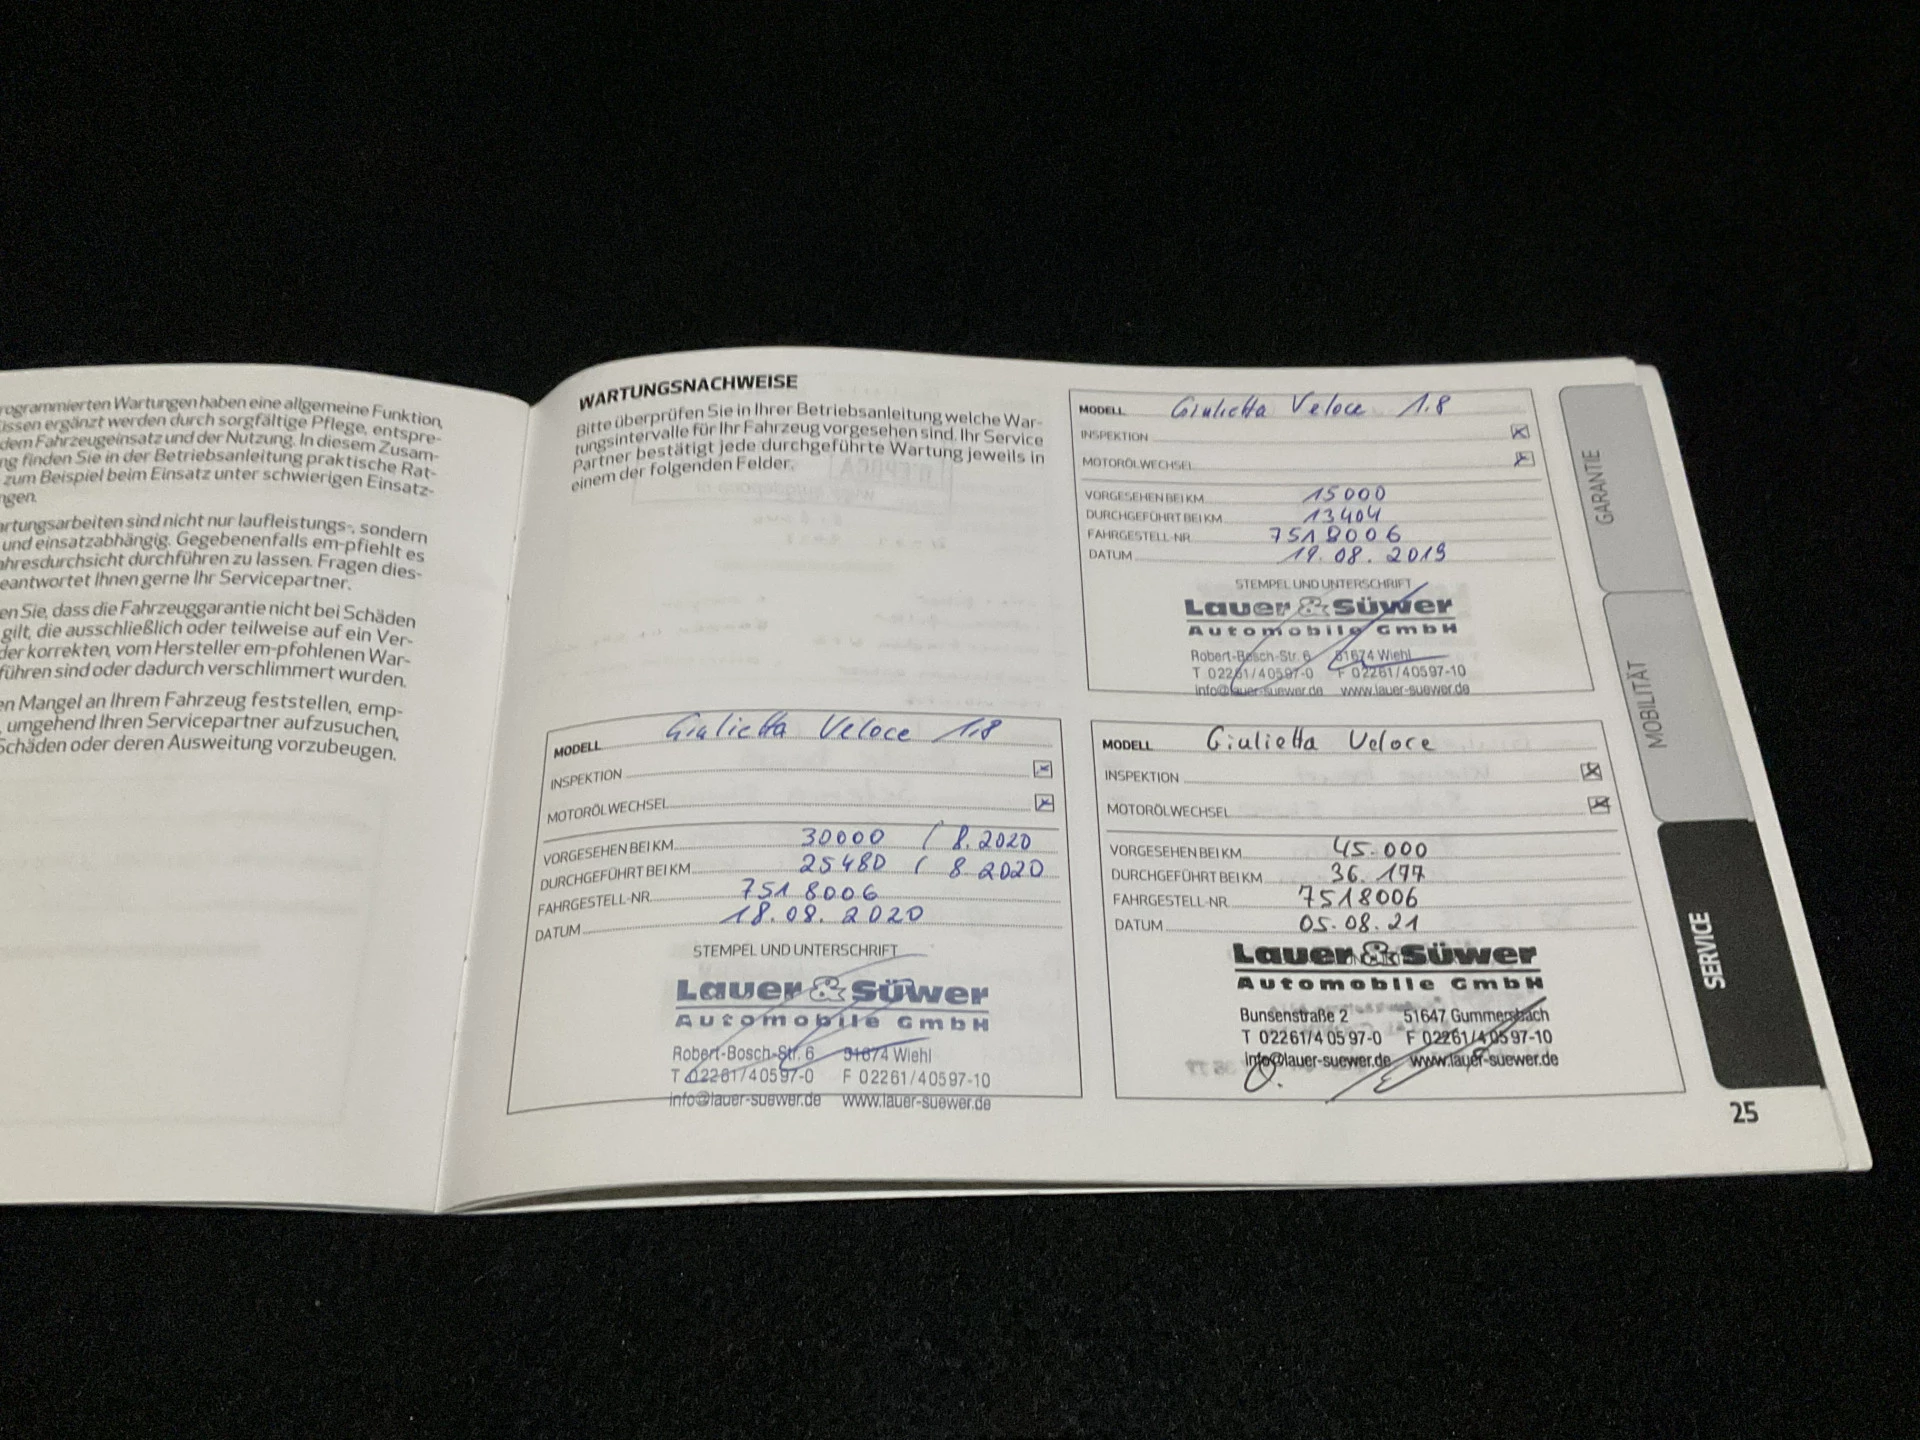 rogrammierten Wartungen haben eine allgemeine Funktion,
üssen ergänzt werden durch sorgfältige Pflege, entspre-
dem Fahrzeugeinsatz und der Nutzung. In diesem Zusam-
ng finden Sie in der Betriebsanleitung praktische Rat-
zum Beispiel beim Einsatz unter schwierigen Einsatz-
ngen.
artungsarbeiten sind nicht nur laufleistungs-, sondern
und einsatzabhängig. Gegebenenfalls em-pfiehlt es
ahresdurchsicht durchführen zu lassen. Fragen dies-
eantwortet Ihnen gerne Ihr Servicepartner.
en Sie, dass die Fahrzeuggarantie nicht bei Schäden
gilt, die ausschließlich oder teilweise auf ein Ver-
der korrekten, vom Hersteller em-pfohlenen War-
führen sind oder dadurch verschlimmert wurden.
en Mangel an Ihrem Fahrzeug feststellen, emp-
, umgehend Ihren Servicepartner aufzusuchen,
Schäden oder deren Ausweitung vorzubeugen.
WARTUNGSNACHWEISE
Bitte überprüfen Sie in Ihrer Betriebsanleitung welche War-
tungsintervalle für Ihr Fahrzeug vorgesehen sind. Ihr Service
Partner bestätigt jede durchgeführte Wartung jeweils in
einem der folgenden Felder.
MODELL Giulietta Veloce 1.8
INSPEKTION
MOTORÖLWECHSEL
VORGESEHEN BEI KM 15000
DURCHGEFÜHRT BEI KM 13404
FAHRGESTELL-NR. 7518006
DATUM 19.08.2019
STEMPEL UND UNTERSCHRIFT
Lauer & Süwer
Automobile GmbH
Robert-Bosch-Str. 6 51674 Wiehl
T 02261/40597-0 F 02261/40597-10
info@lauer-suewer.de www.lauer-suewer.de
MODELL Giulietta Veloce 1.8
INSPEKTION
MOTORÖLWECHSEL
VORGESEHEN BEI KM 30000 / 8.2020
DURCHGEFÜHRT BEI KM 25480 / 8.2020
FAHRGESTELL-NR. 7518006
DATUM 18.08.2020
STEMPEL UND UNTERSCHRIFT
Lauer & Süwer
Automobile GmbH
Robert-Bosch-Str. 6 51674 Wiehl
T 02261/40597-0 F 02261/40597-10
info@lauer-suewer.de www.lauer-suewer.de
MODELL Giulietta Veloce
INSPEKTION
MOTORÖLWECHSEL
VORGESEHEN BEI KM 45.000
DURCHGEFÜHRT BEI KM 36.177
FAHRGESTELL-NR. 7518006
DATUM 05.08.21
Lauer & Süwer
Automobile GmbH
Bunsenstraße 2 51647 Gummersbach
T 02261/4 05 97-0 F 02261/4 05 97-10
info@lauer-suewer.de www.lauer-suewer.de
GARANTIE
MOBILITÄT
SERVICE
25